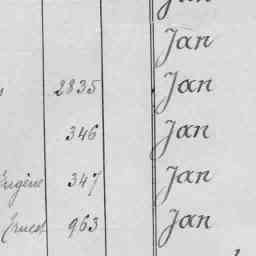 Jan
Jan
2835 Jan
346 Jan
Eugène 347 Jan
Ernest 963 Jan